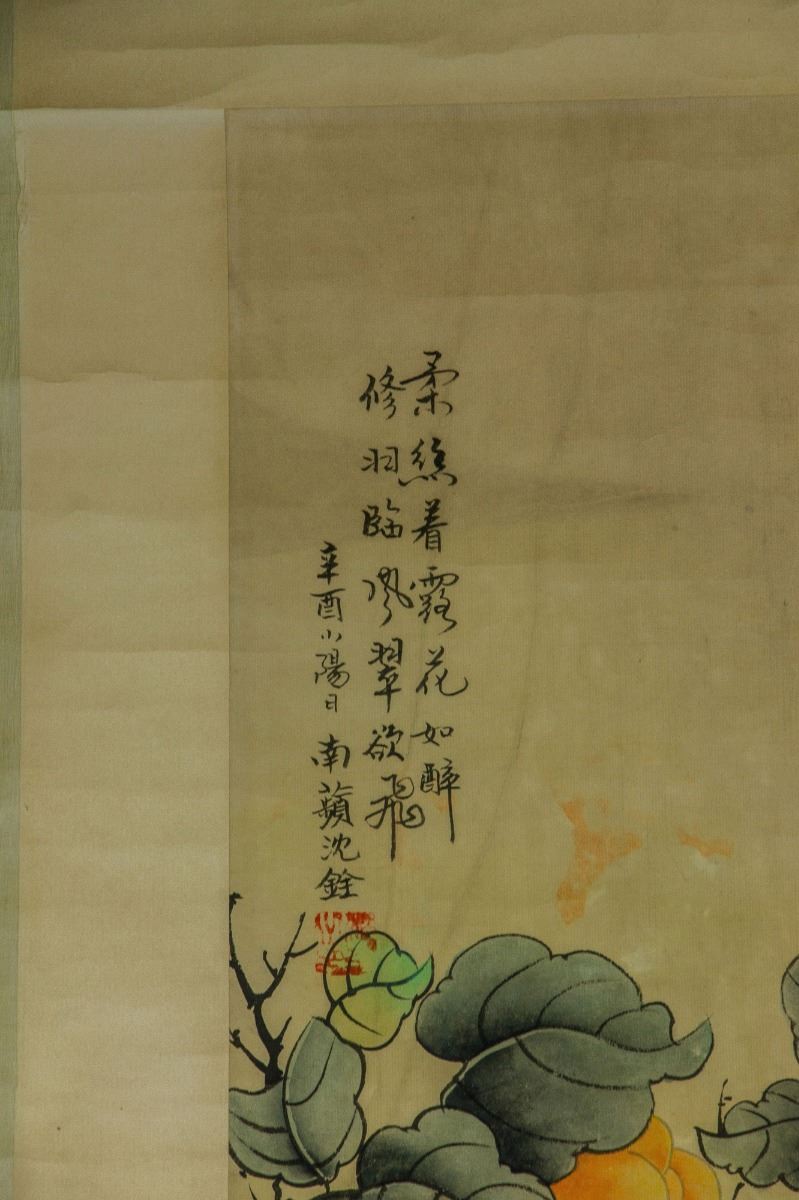 柔絲着露花如醉
修羽臨風翠欲飛
辛酉小陽日 南蘋沈銓